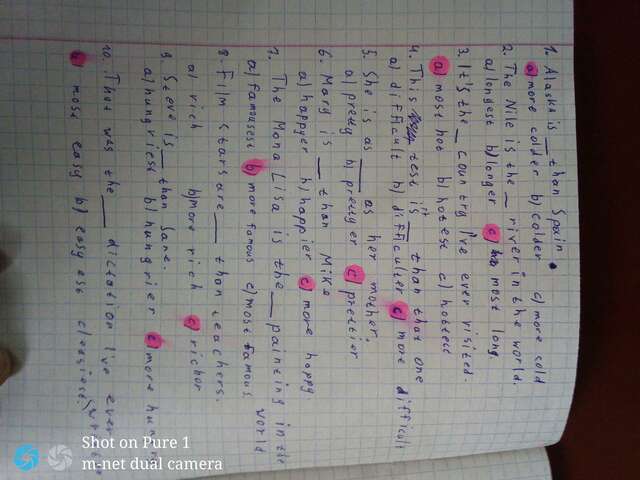 1. Alaska is __ than Spain.
a) more colder b) colder c) more cold
2. The Nile is the __ river in the world.
a) longest b) longer c) most long.
3. It's the __ country I've ever visited.
a) most hot b) hotest c) hottest
4. This test is __ than that one
a) difficult b) difficulter c) more difficult
5. She is as ___ as her mother.
a) pretty b) prettyer c) prettier
6. Mary is ___ than Mike
a) happyer b) happier c) more happy
7. The Mona Lisa is the __ painting in the world
a) famousest b) more famous c) most famous
8. Film stars are ___ than teachers.
a) rich b) more rich c) richer
9. Steve is __ than Jane.
a) hungriest b) hungrier c) more
10. That was the ___ dictation I've ever
a) most easy b) easyest c) easiest.
Shot on Pure 1
m-net dual camera